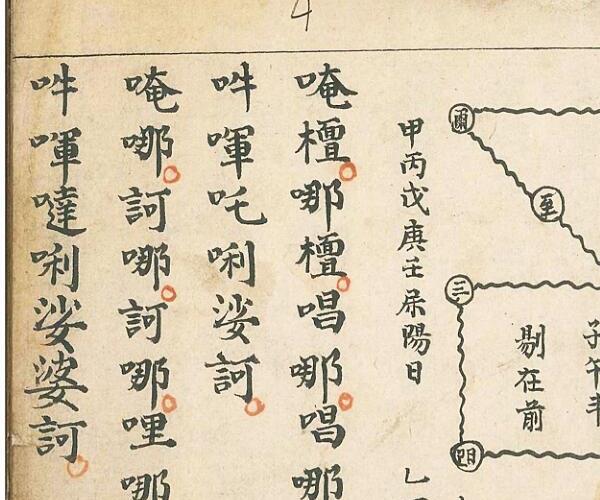 4
爾
至
三
子午
剔在前
甲丙戊庚壬屬陽日
乙
唵檀哪檀唱哪唱哪
吽㖶吒唎娑訶
唵哪訶哪訶哪哩哪
吽㖶噠唎娑婆訶